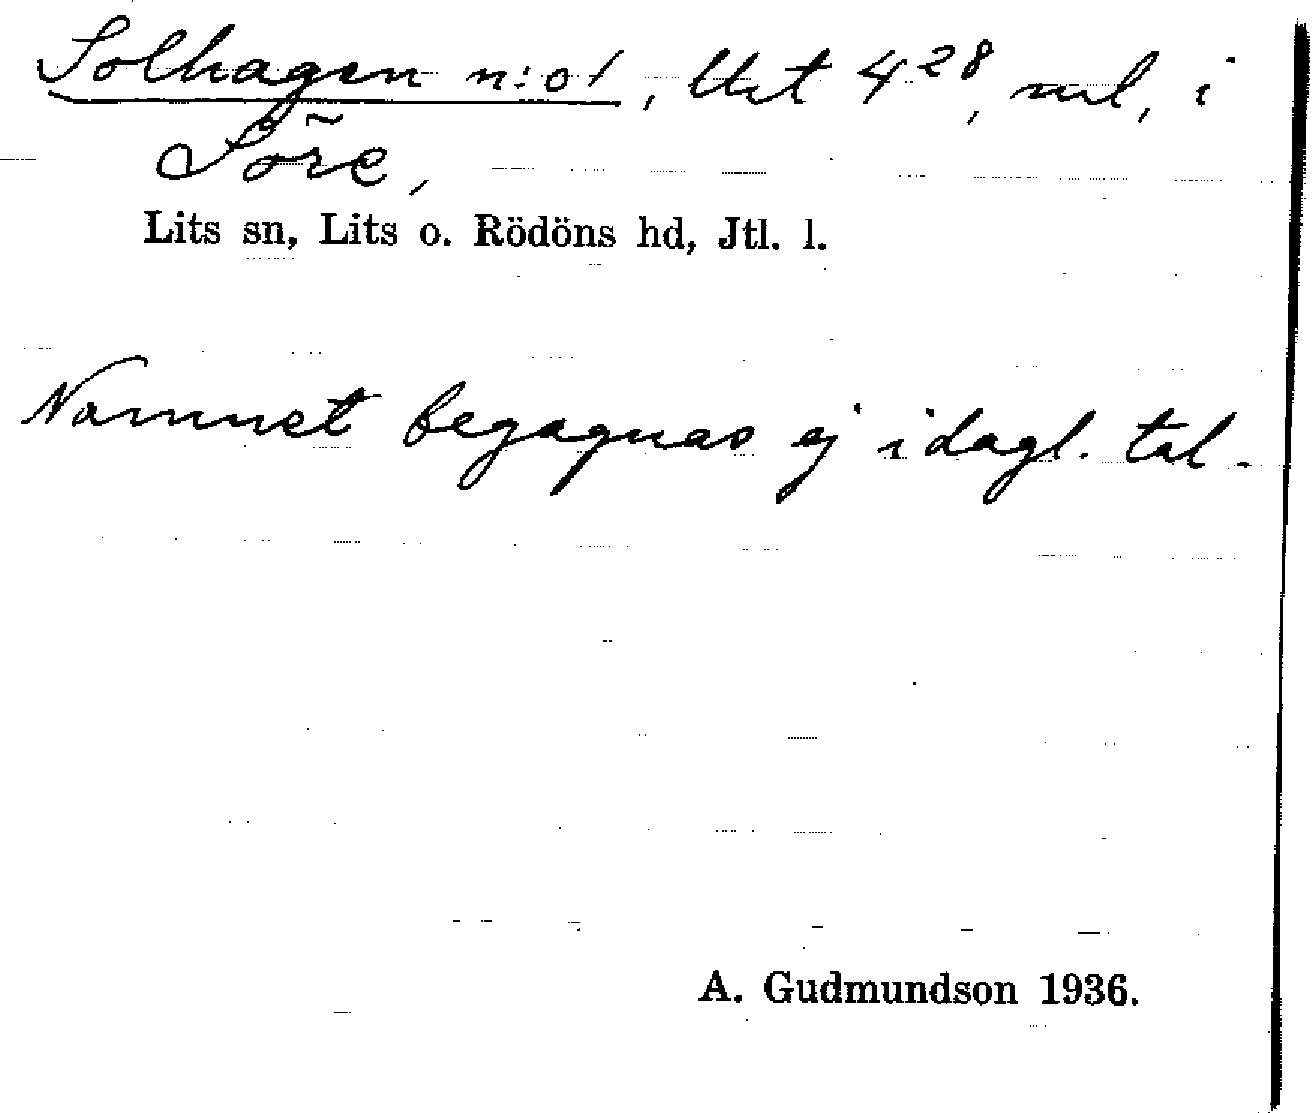 Solhagen n:o 1, Utst 4²⁸, ml, i
Söre,
Lits sn, Lits o. Rödöns hd, Jtl. l.
Namnet begagnas ej i dagl. tal.
A. Gudmundson 1936.